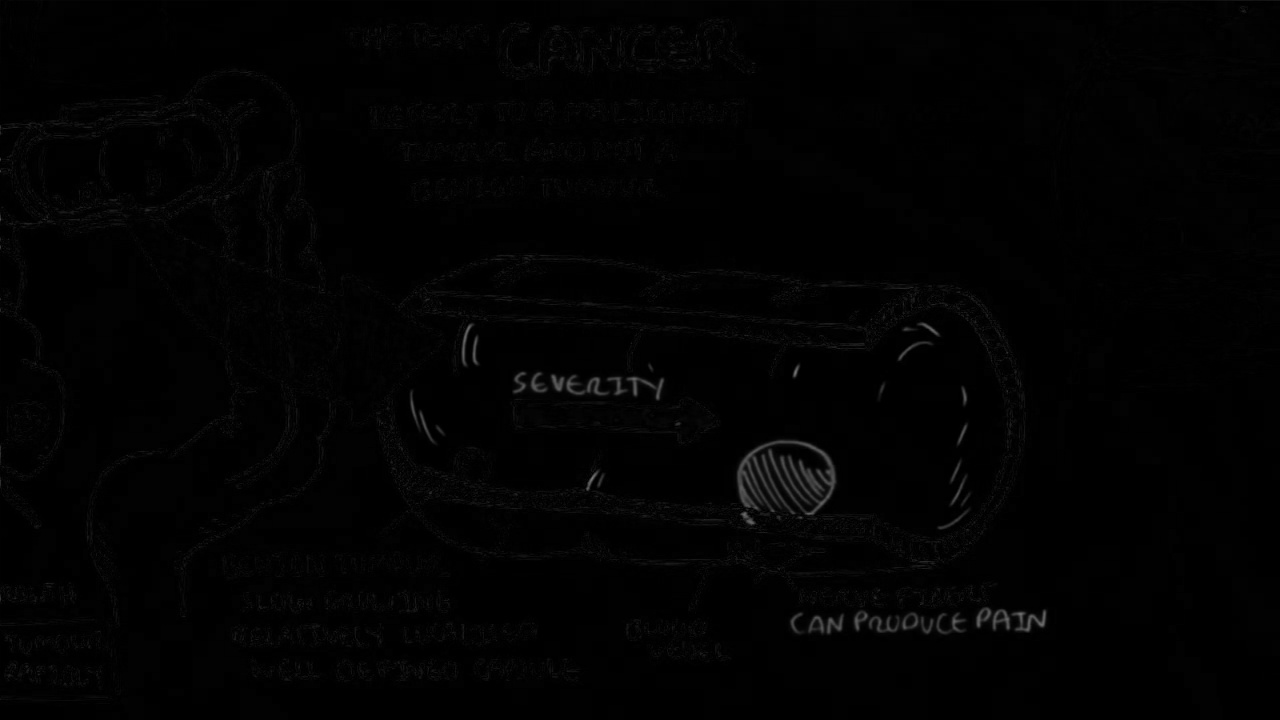 THE TERM CANCER
REFERS TO A MALIGNANT
TUMOUR AND NOT A
BENIGN TUMOUR
SEVERITY
BENIGN TUMOUR
SLOW GROWING
RELATIVELY LOCALISED
WELL DEFINED CAPSULE
BLOOD
VESSEL
NERVE
CAN PRODUCE PAIN
TUMOUR